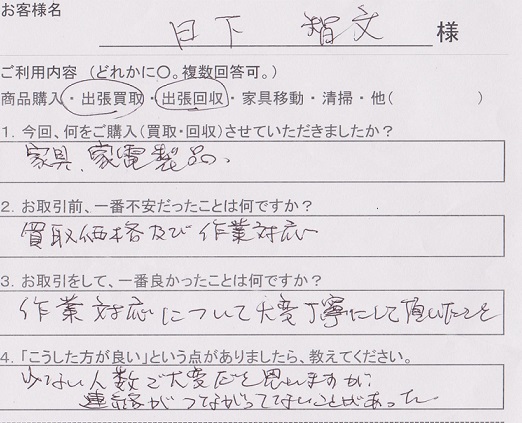 お客様名
日下 智文 様
ご利用内容 (どれかに○。複数回答可。)
商品購入・出張買取・出張回収・家具移動・清掃・他( )
1. 今回、何をご購入(買取・回収)させていただきましたか?
家具、家電製品、
2. お取引前、一番不安だったことは何ですか?
買取価格及び作業対応
3. お取引をして、一番良かったことは何ですか?
作業対応について大変丁寧にして頂いたこと
4. 「こうした方が良い」という点がありましたら、教えてください。
少ない人数で大変だと思いますが
連絡がつながってないことがあった